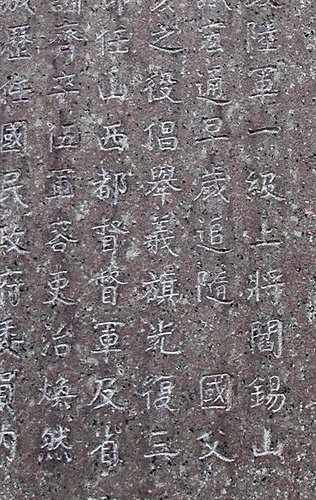 陸軍一級上將閻錫山
宏通早歲追隨 國父
之役倡舉義旗光復三
任山西都督督軍及省
齊卒伍吏治煥然
歷任國民政府委員內